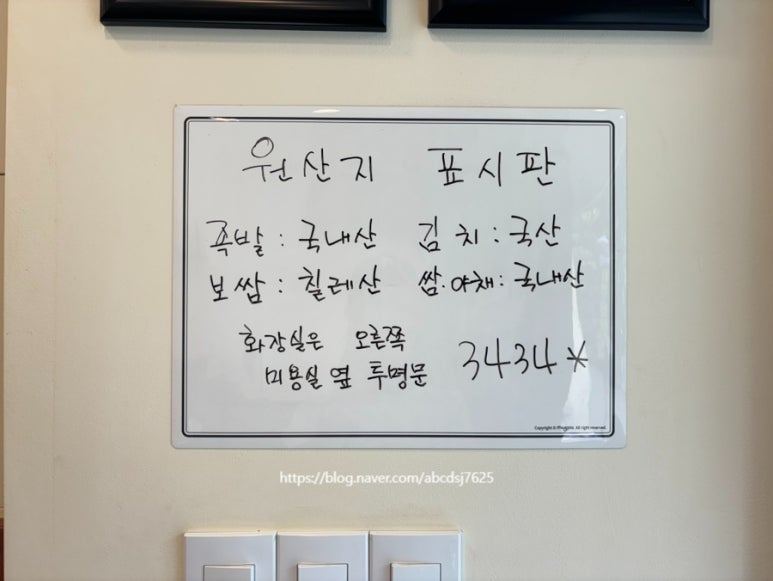 원산지 표시판
족발 : 국내산 김치 : 국산
보쌈 : 칠레산 쌈.야채 : 국내산
화장실은 오른쪽
미용실 옆 투명문 3434*
https://blog.naver.com/abcdsj7625